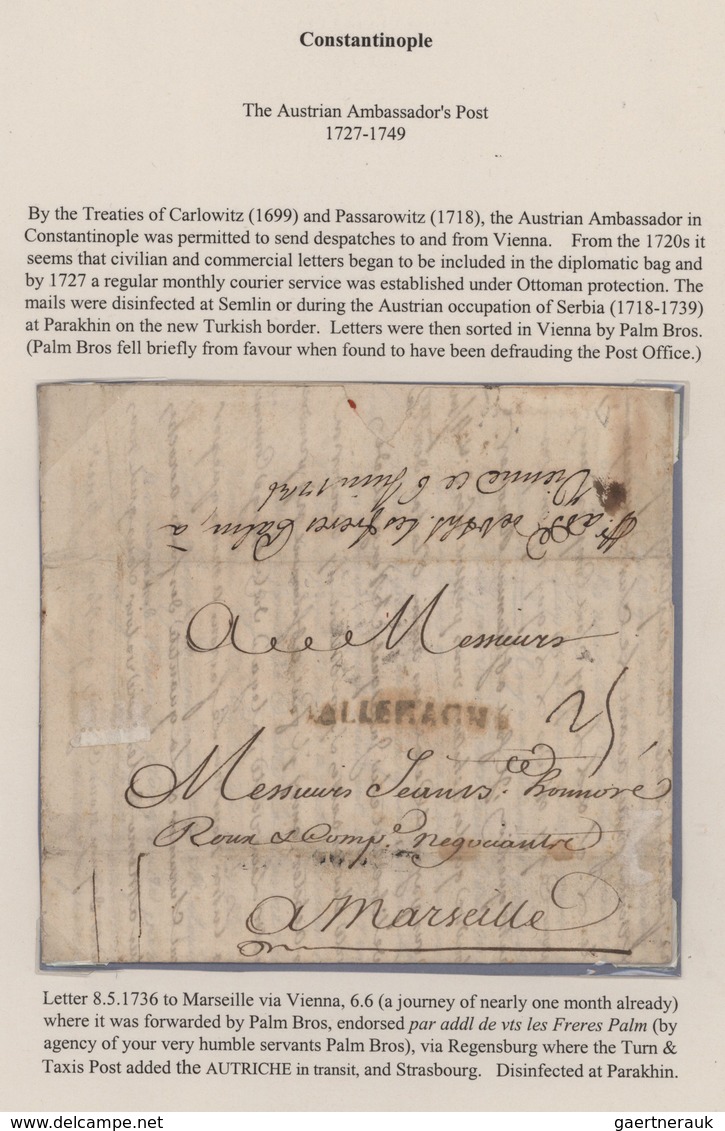 Constantinople
The Austrian Ambassador's Post
1727-1749
By the Treaties of Carlowitz (1699) and Passarowitz (1718), the Austrian Ambassador in
Constantinople was permitted to send despatches to and from Vienna. From the 1720s it
seems that civilian and commercial letters began to be included in the diplomatic bag and
by 1727 a regular monthly courier service was established under Ottoman protection. The
mails were disinfected at Semlin or during the Austrian occupation of Serbia (1718-1739)
at Parakhin on the new Turkish border. Letters were then sorted in Vienna by Palm Bros.
(Palm Bros fell briefly from favour when found to have been defrauding the Post Office.)
les freres Palm, à
Vienne ce 6
A Messieurs
ALLEMAGNE
Messieurs Honnoré
Roux & Comp.e negociants
A Marseille
Letter 8.5.1736 to Marseille via Vienna, 6.6 (a journey of nearly one month already)
where it was forwarded by Palm Bros, endorsed par addl de vts les Freres Palm (by
agency of your very humble servants Palm Bros), via Regensburg where the Turn &
Taxis Post added the AUTRICHE in transit, and Strasbourg. Disinfected at Parakhin.
www.delcampe.net
gaertnerauk